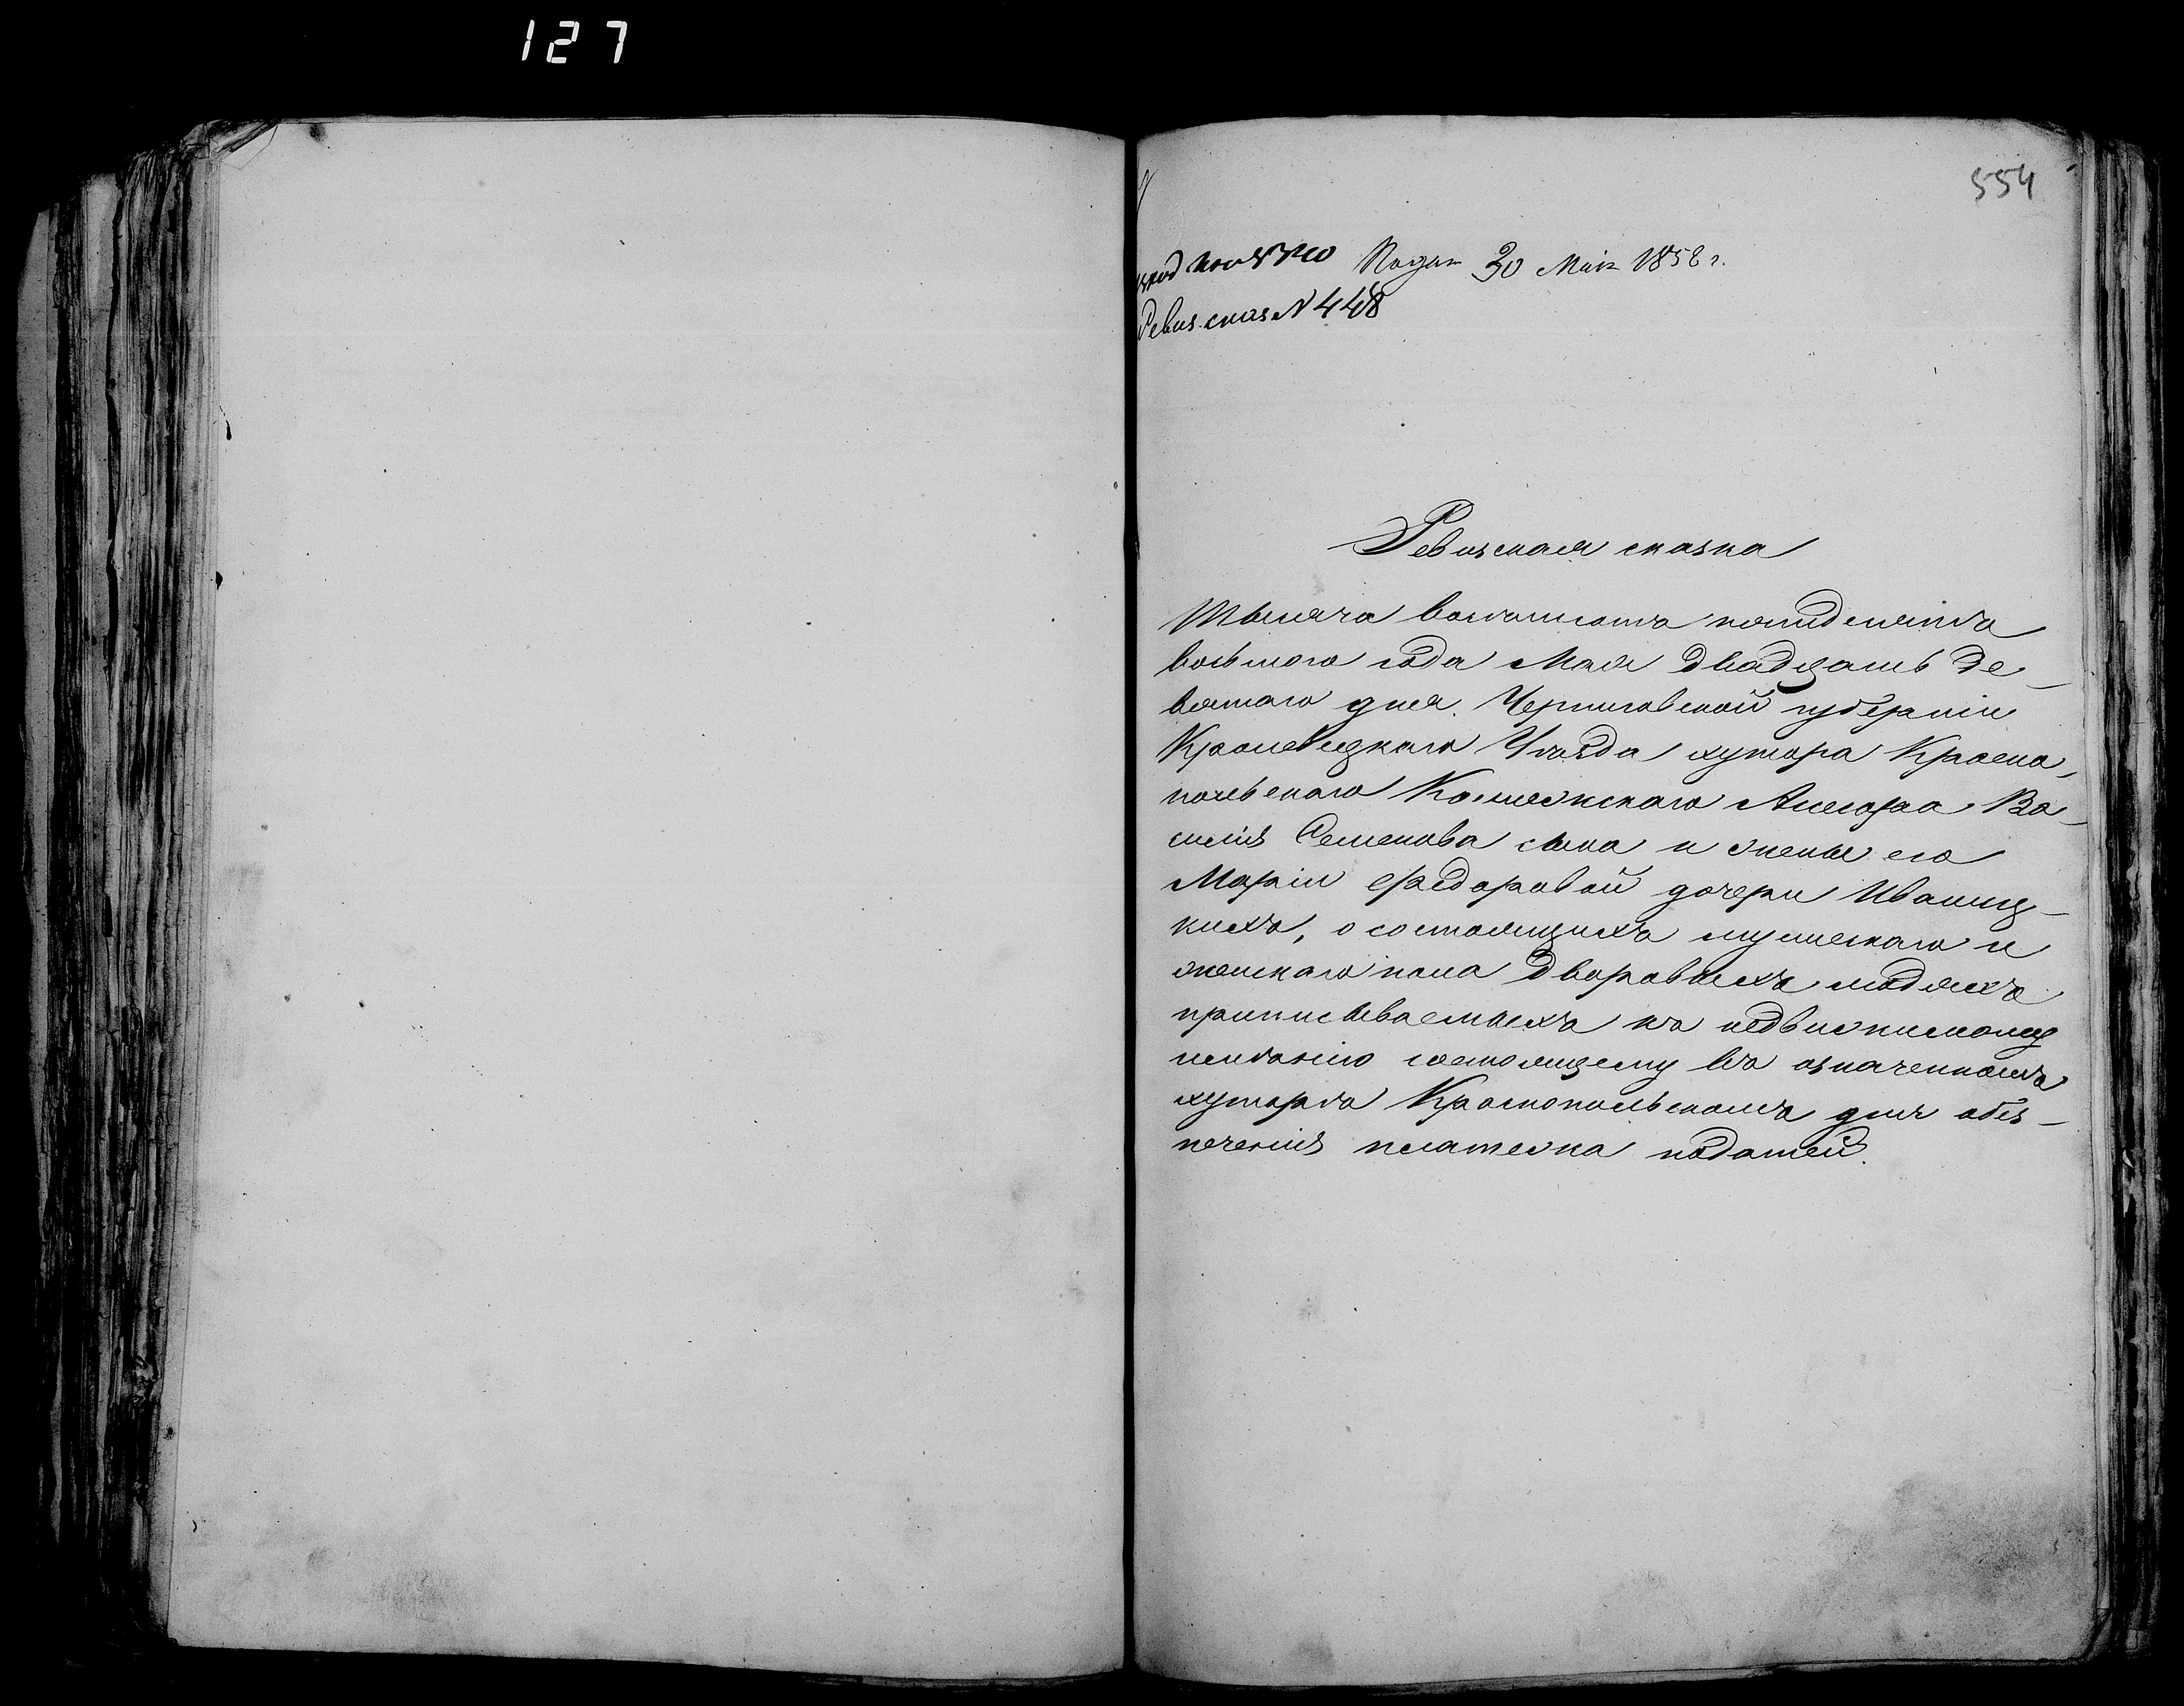 127
554
Подан 30 Мая 1858 г.
Ревиз. сказ. N 448
Ревизская сказка
Тысяча восемьсотъ пятьдесятъ
восьмого года Мая двадцать де-
вятого дня. Черниговской губерніи
Кролевецкаго Уѣзда хутора Красно-
польского Колежскаго Асесора Ва-
силія Семенова сына и жены его
Маріи Федоровой дочери Иваниц-
кихъ, о состоящихъ мужескаго и
женскаго пола дворовыхъ людяхъ
приписываемыхъ къ недвижимому
имѣнію состоящему въ означенномъ
хуторѣ Краснопольскомъ для обез-
печенія платежа податей.